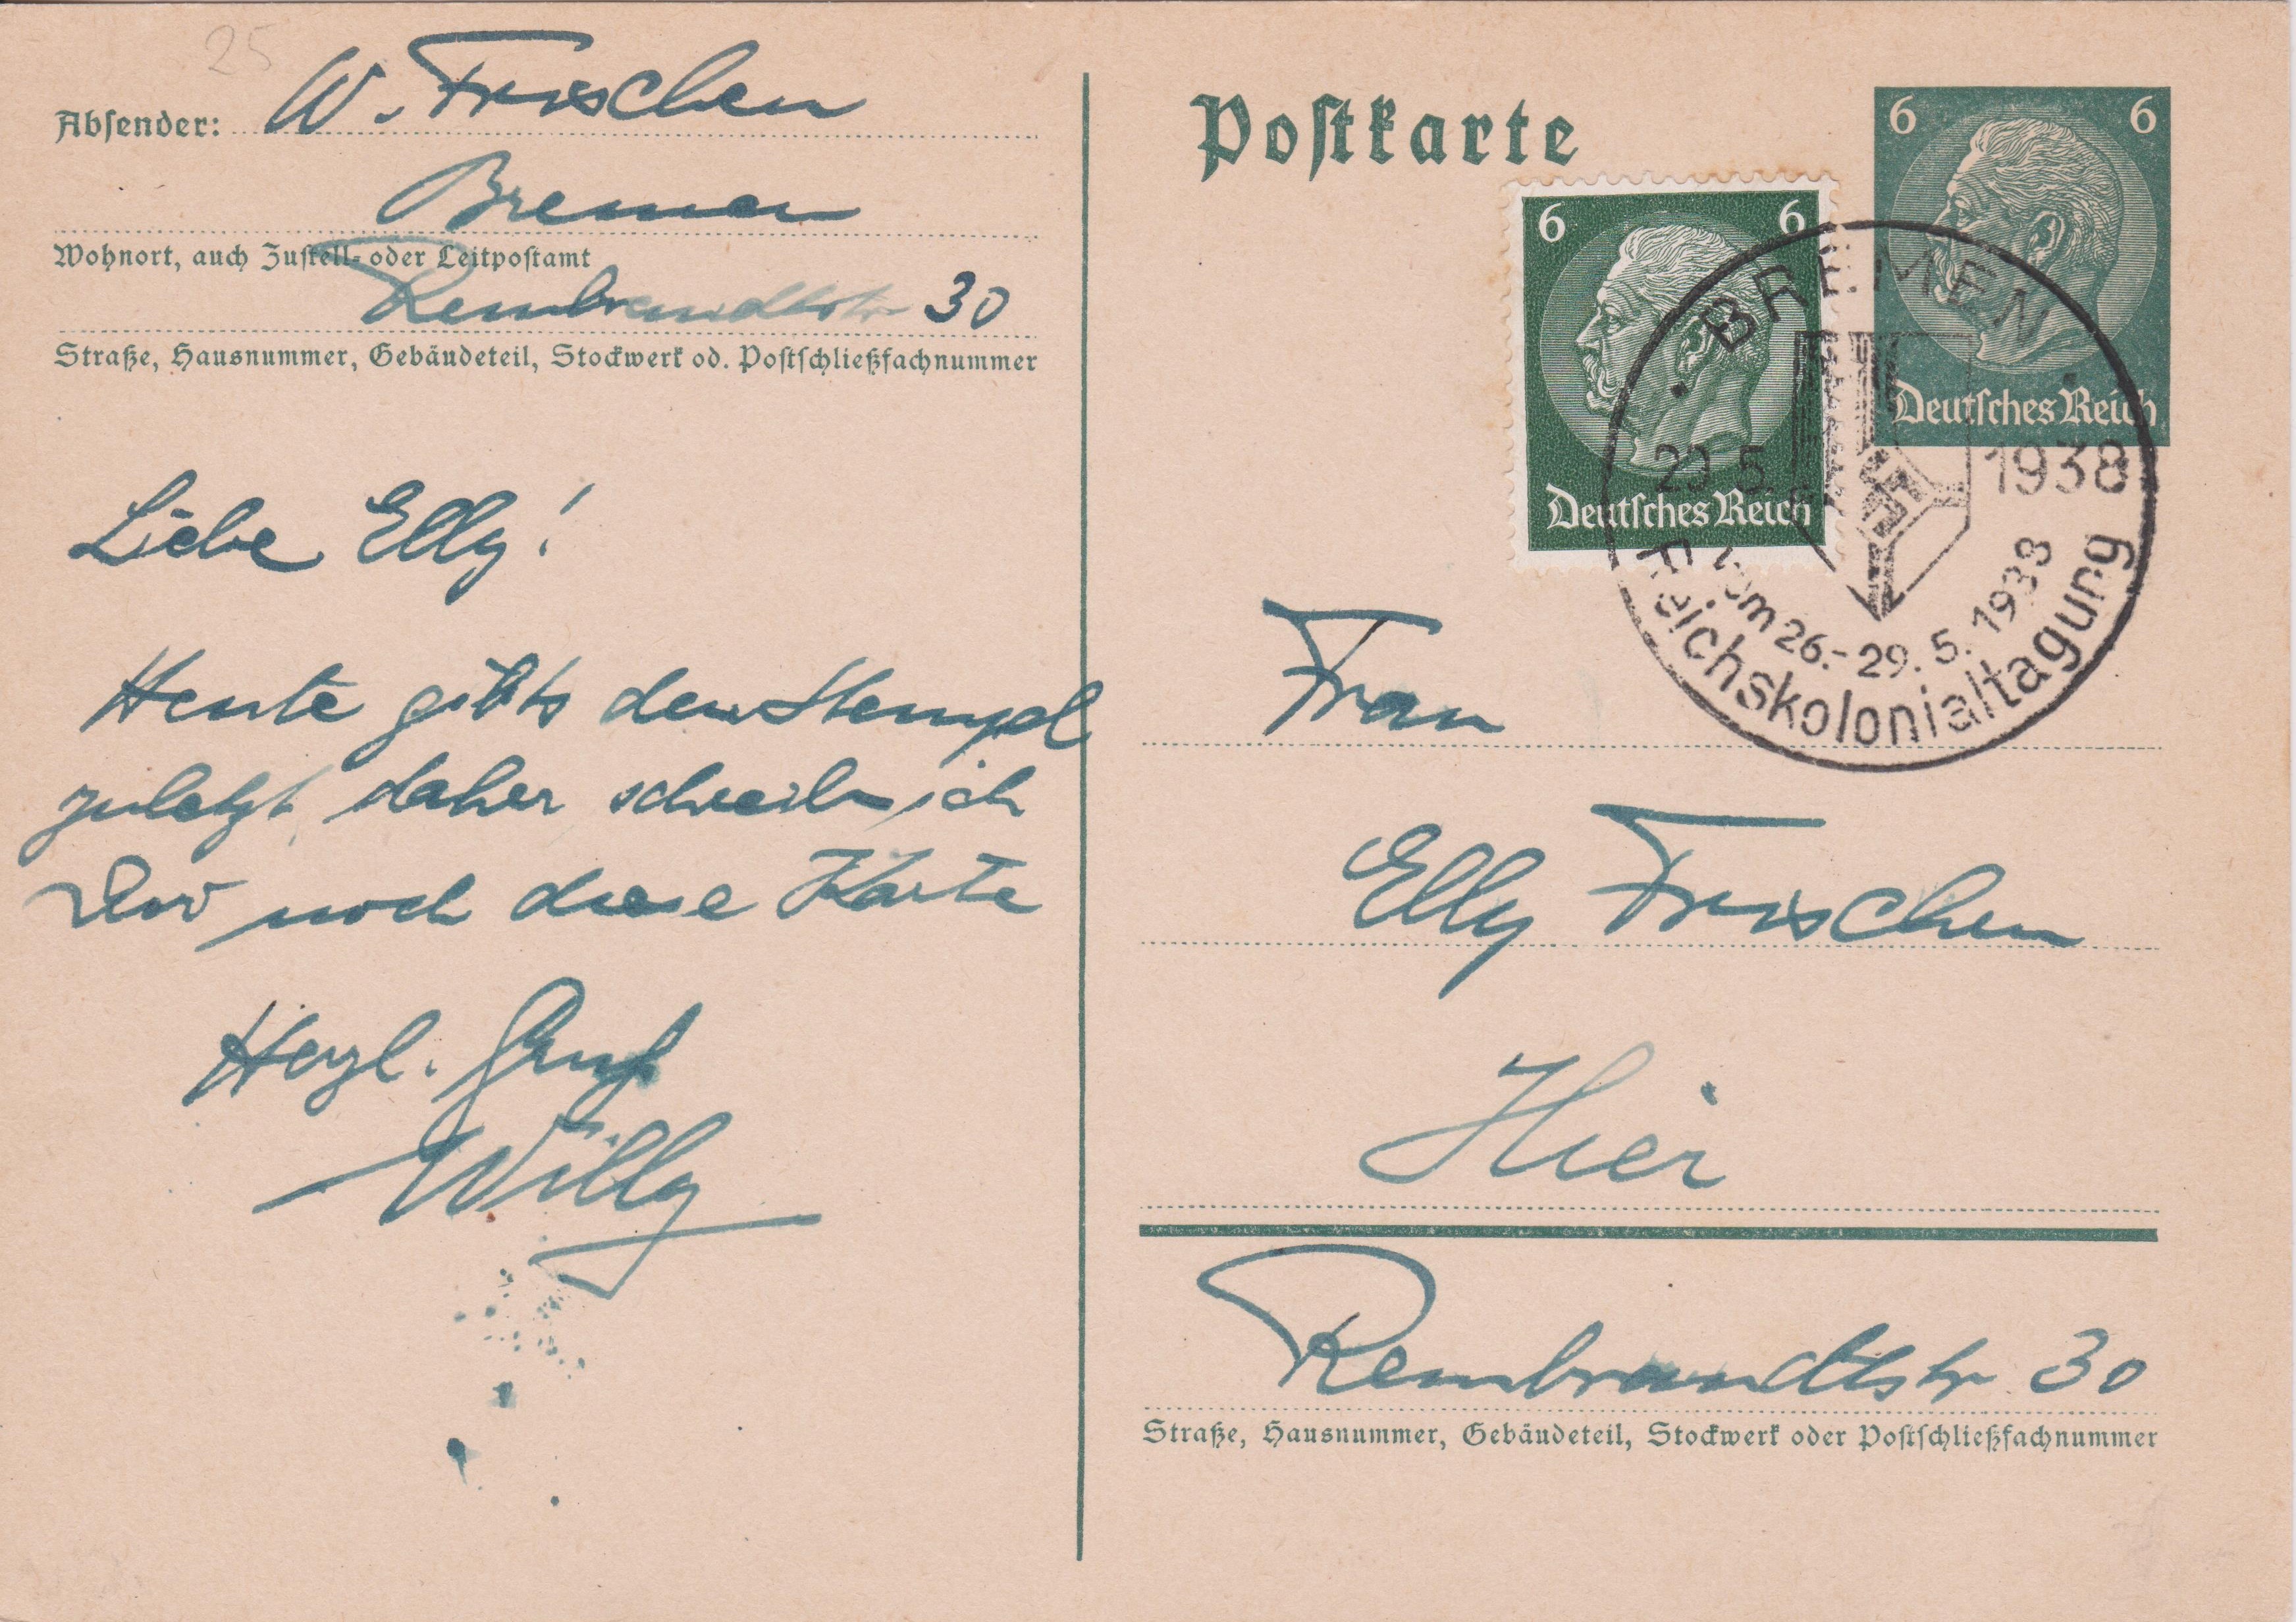 25
Absender: W. Frerschen
Bremen
Wohnort, auch Zustell- oder Leitpostamt
Rembrandtstr 30
Straße, Hausnummer, Gebäudeteil, Stockwerk od. Postschließfachnummer
Liebe Elly!
Heute gibts den Stempel
zuletzt daher schreib ich
Dir noch diese Karte
Herzl. Gruß
Willy
Postkarte
6 6
Deutsches Reich
6 6
Deutsches Reich
BREMEN
29.5. 1938
vom 26.-29.5.1938
Reichskolonialtagung
Frau
Elly
Hier
Rembrandtstr 30
Straße, Hausnummer, Gebäudeteil, Stockwerk oder Postschließfachnummer